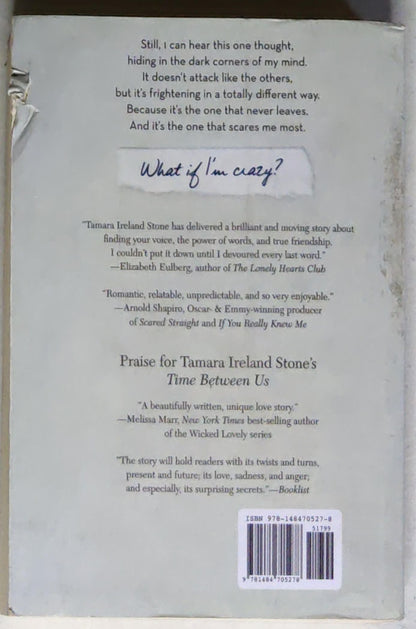 Still, I can hear this one thought,
hiding in the dark corners of my mind.
It doesn't attack like the others,
but it's frightening in a totally different way.
Because it's the one that never leaves.
And it's the one that scares me most.
What if I'm crazy?
"Tamara Ireland Stone has delivered a brilliant and moving story about
finding your voice, the power of words, and true friendship.
I couldn't put it down until I devoured every last word."
—Elizabeth Eulberg, author of The Lonely Hearts Club
"Romantic, relatable, unpredictable, and so very enjoyable."
—Arnold Shapiro, Oscar- & Emmy-winning producer
of Scared Straight and If You Really Knew Me
Praise for Tamara Ireland Stone's
Time Between Us
"A beautifully written, unique love story."
—Melissa Marr, New York Times best-selling author
of the Wicked Lovely series
"The story will hold readers with its twists and turns,
present and future; its love, sadness, and anger;
and especially, its surprising secrets."—Booklist
ISBN 978-148470527-8
51799
9 781484 705278